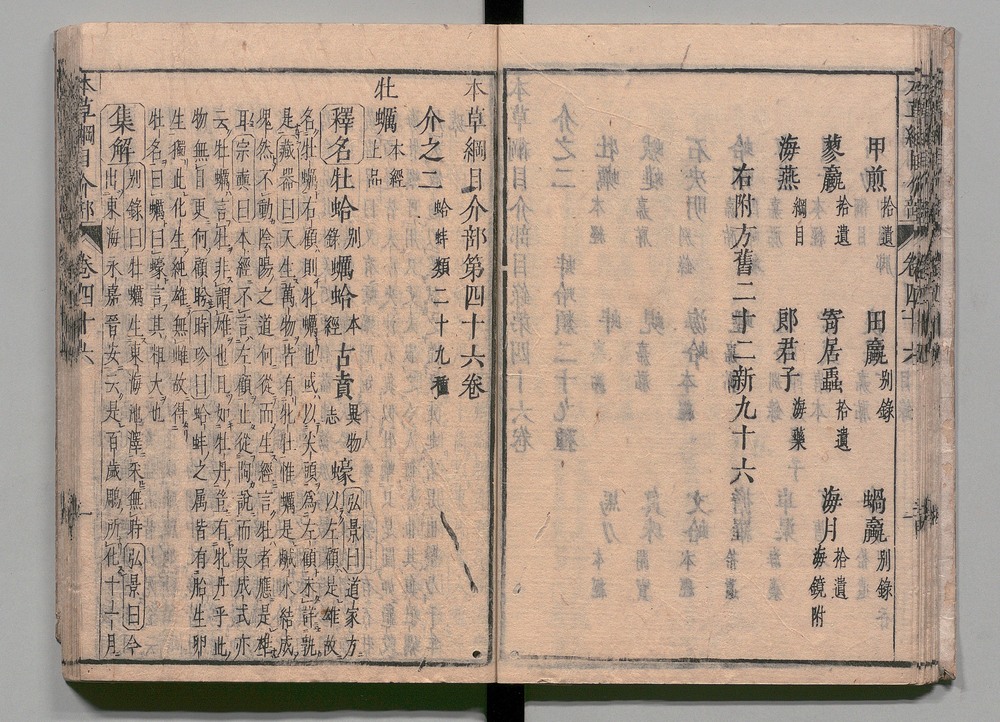 甲煎 拾遺 田蠃 別錄 蝸蠃 別錄
蓼蠃 拾遺 寄居蟲 拾遺 海月 拾遺 海鏡附
海燕 綱目 郎君子 海藥
右附方舊二十二新九十六
本草綱目介部第四十六卷
介之二 蛤蚌類二十九種
牡蠣 本經上品
釋名 牡蛤 別錄 蠣蛤 本經 古賁 異物志 蠔 弘景曰道家方以左顧是雄故
名牡蠣右顧則牝蠣也或以尖頭爲左顧未詳孰
是藏器曰天生萬物皆有牝牡惟蠣是鹹水結成
塊然不動陰陽之道何從而生經言牡者應是雄
耳宗奭曰本經不言左顧止從陶說而段成式亦
云牡蠣言牡非謂雄也且如牡丹豈有牝丹乎此
物無目更何顧盼時珍曰蛤蚌之属皆有胎生卵
生獨此化生純雄無雌故得
牡名曰蠣曰蠔言其粗大也
集解 別錄曰牡蠣生東海池澤采無時弘景曰今
出東海永嘉晉安云是百歲鵰所化十一月
本草綱目介部 卷四十六 一